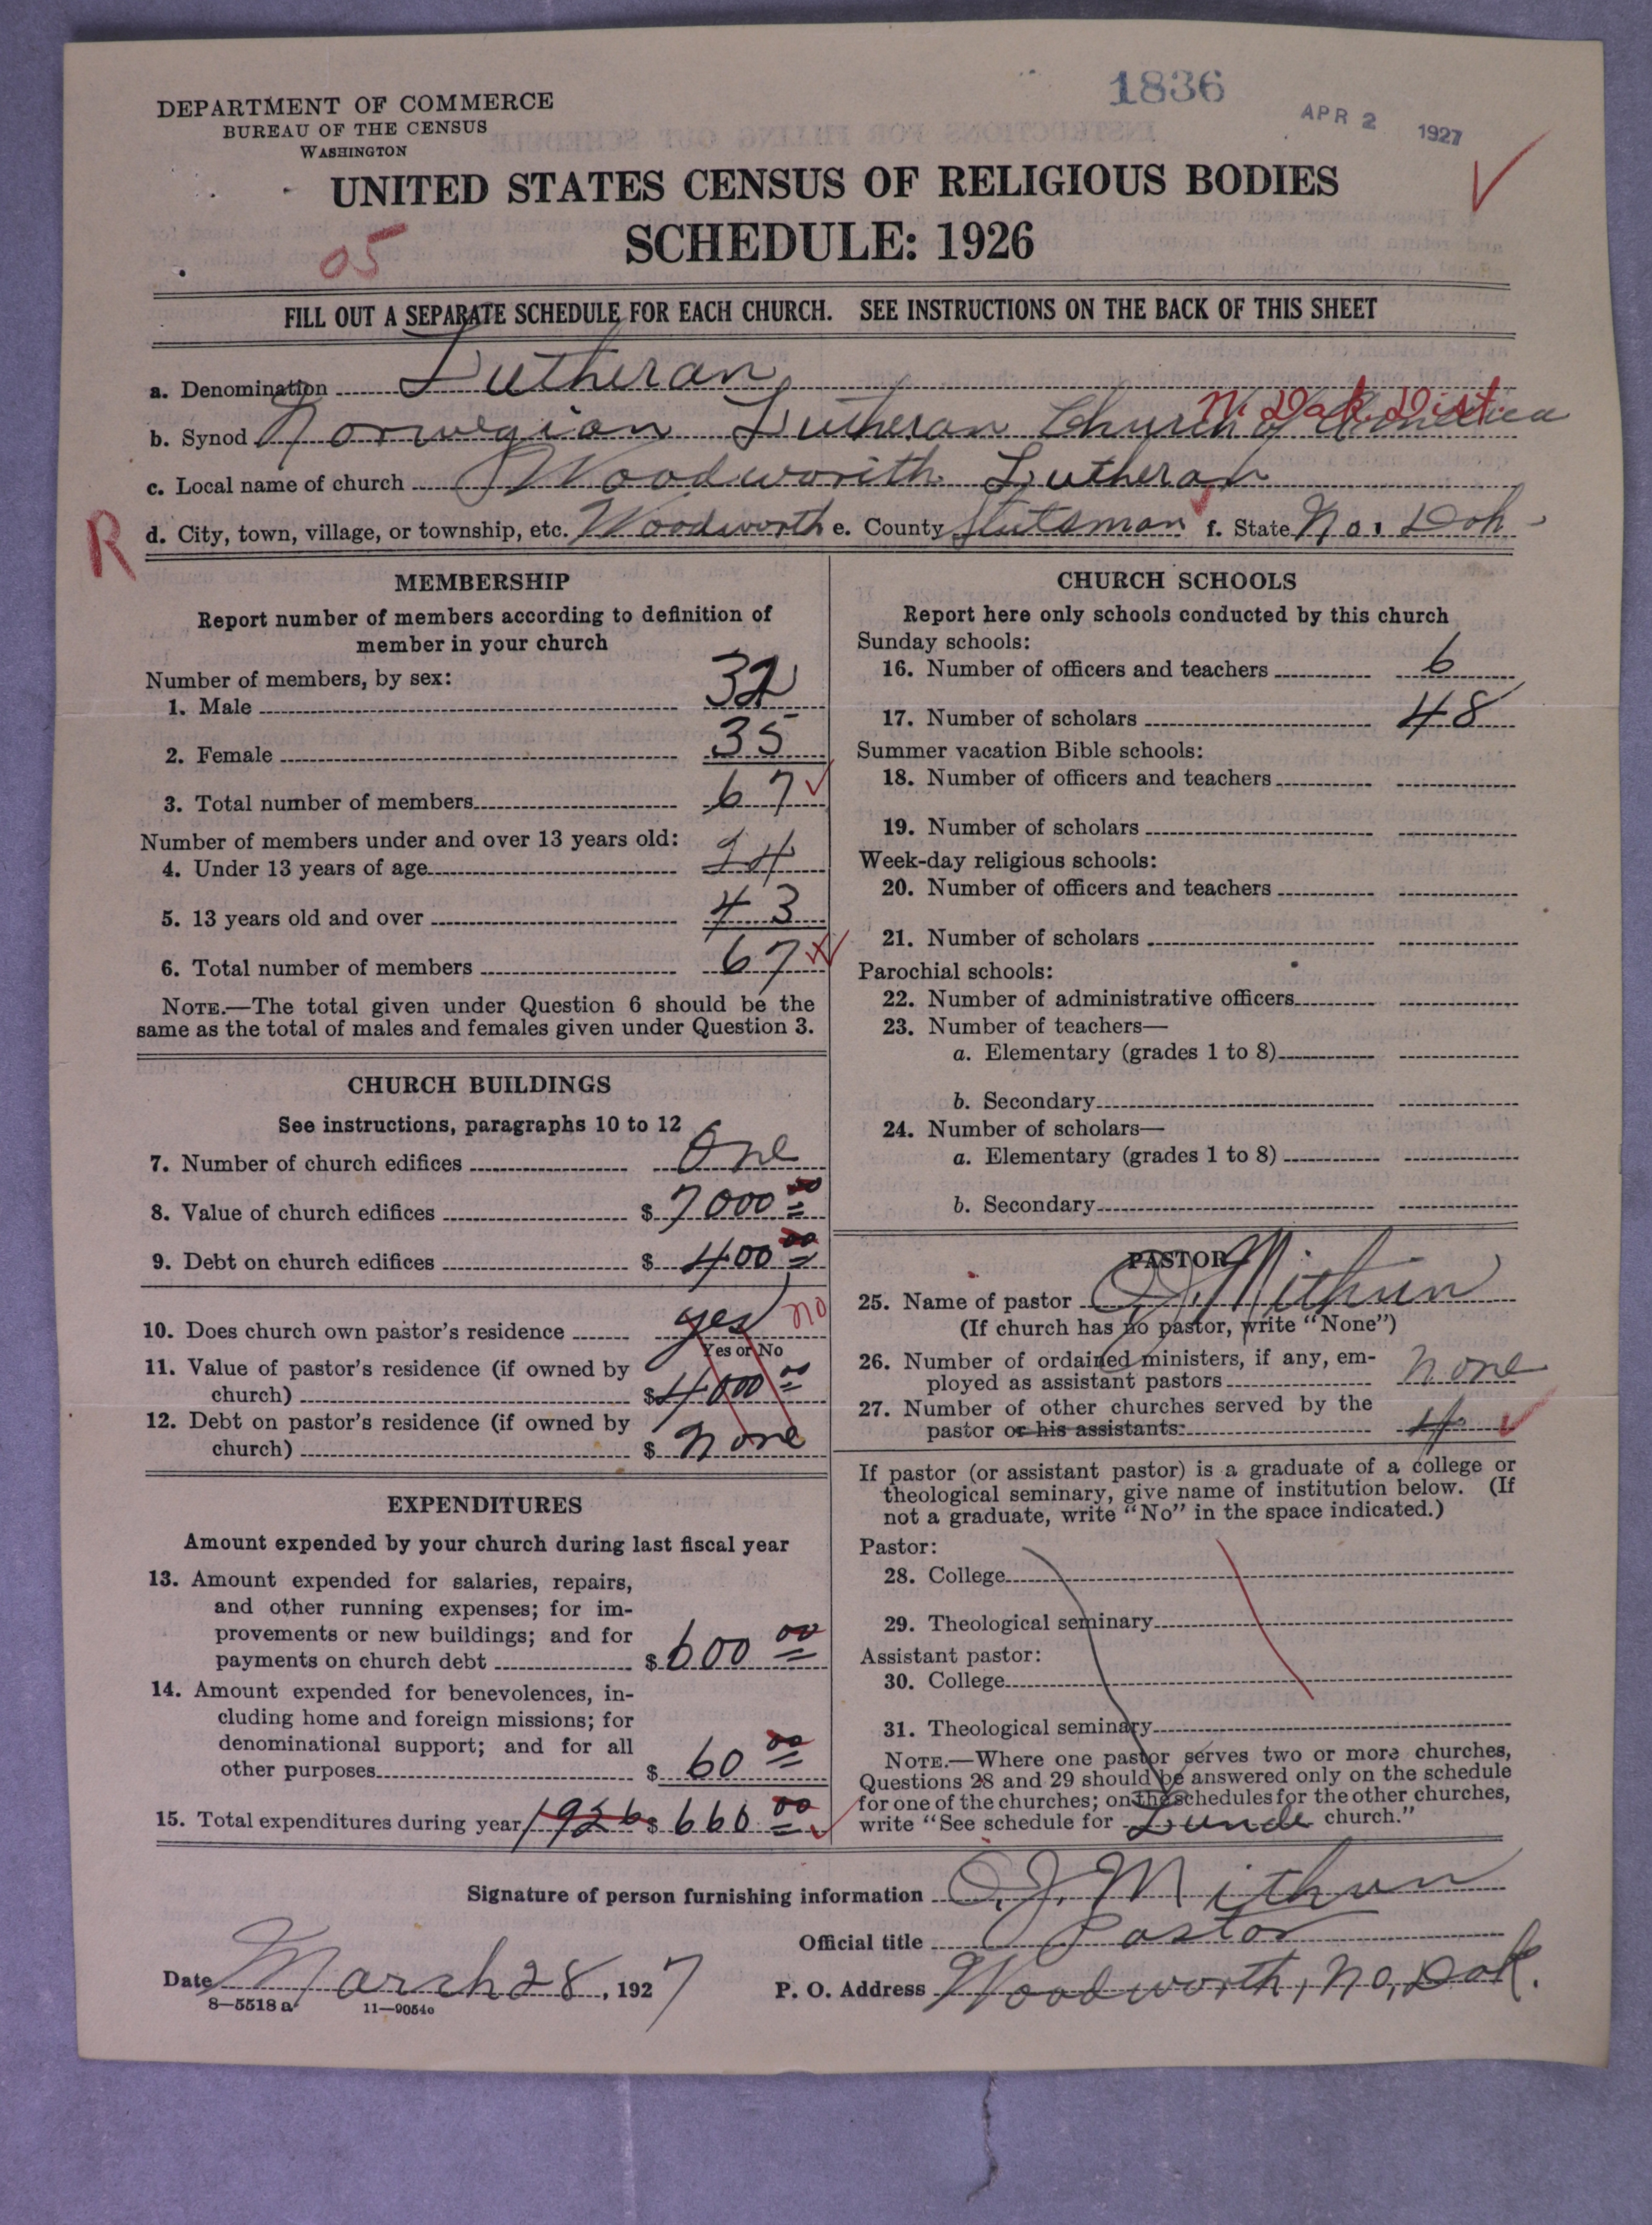 1836
APR 2 1927
DEPARTMENT OF COMMERCE
BUREAU OF THE CENSUS
WASHINGTON
UNITED STATES CENSUS OF RELIGIOUS BODIES
SCHEDULE: 1926
05
FILL OUT A SEPARATE SCHEDULE FOR EACH CHURCH. SEE INSTRUCTIONS ON THE BACK OF THIS SHEET
a. Denomination Lutheran
N. Dak. Dist.
b. Synod Norwegian Lutheran Church of America
c. Local name of church Woodworth Lutheran
R
d. City, town, village, or township, etc. Woodworth e. County Stutsman f. State No. Dak
MEMBERSHIP
Report number of members according to definition of
member in your church
Number of members, by sex:
1. Male 32
2. Female 35
3. Total number of members 67
Number of members under and over 13 years old:
4. Under 13 years of age 24
5. 13 years old and over 43
6. Total number of members 67
NOTE.—The total given under Question 6 should be the
same as the total of males and females given under Question 3.
CHURCH BUILDINGS
See instructions, paragraphs 10 to 12
7. Number of church edifices One
8. Value of church edifices $ 7000 00
9. Debt on church edifices $ 400 00
10. Does church own pastor's residence yes no
Yes or No
11. Value of pastor's residence (if owned by
church) $ 4000 00
12. Debt on pastor's residence (if owned by
church) $ None
EXPENDITURES
Amount expended by your church during last fiscal year
13. Amount expended for salaries, repairs,
and other running expenses; for im-
provements or new buildings; and for
payments on church debt $ 600 00
14. Amount expended for benevolences, in-
cluding home and foreign missions; for
denominational support; and for all
other purposes $ 60 00
15. Total expenditures during year 1926 $ 660 00
CHURCH SCHOOLS
Report here only schools conducted by this church
Sunday schools:
16. Number of officers and teachers 6
17. Number of scholars 48
Summer vacation Bible schools:
18. Number of officers and teachers
19. Number of scholars
Week-day religious schools:
20. Number of officers and teachers
21. Number of scholars
Parochial schools:
22. Number of administrative officers
23. Number of teachers—
a. Elementary (grades 1 to 8)
b. Secondary
24. Number of scholars—
a. Elementary (grades 1 to 8)
b. Secondary
PASTOR
25. Name of pastor O. J. Mithun
(If church has no pastor, write "None")
26. Number of ordained ministers, if any, em-
ployed as assistant pastors None
27. Number of other churches served by the
pastor or his assistants: 4
If pastor (or assistant pastor) is a graduate of a college or
theological seminary, give name of institution below. (If
not a graduate, write "No" in the space indicated.)
Pastor:
28. College
29. Theological seminary
Assistant pastor:
30. College
31. Theological seminary
NOTE.—Where one pastor serves two or more churches,
Questions 28 and 29 should be answered only on the schedule
for one of the churches; on the schedules for the other churches,
write "See schedule for Lunde church."
Signature of person furnishing information O. J. Mithun
Official title Pastor
Date March 28, 1927 P. O. Address Woodworth, No, Dak.
8—5518 a 11—9054o